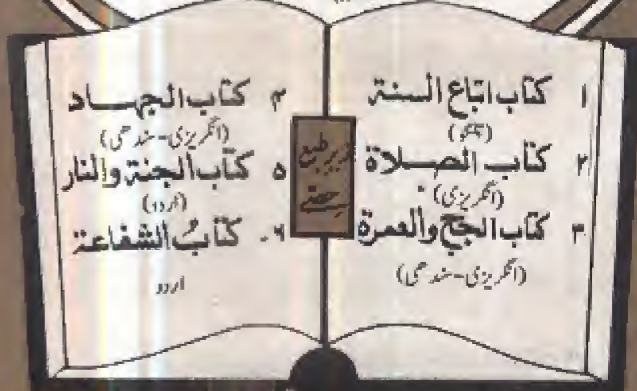 ۱ كتاب اتباع السنة
(تیلگو)
۲ كتاب الصلاة
(انگریزی)
۳ كتاب الحج والعمرة
(انگریزی-سندھی)
زیر طبع
حصے
۴ كتاب الجهاد
(انگریزی-سندھی)
۵ كتاب الجنة والنار
(اردو)
۶- كتابُ الشفاعة
اردو